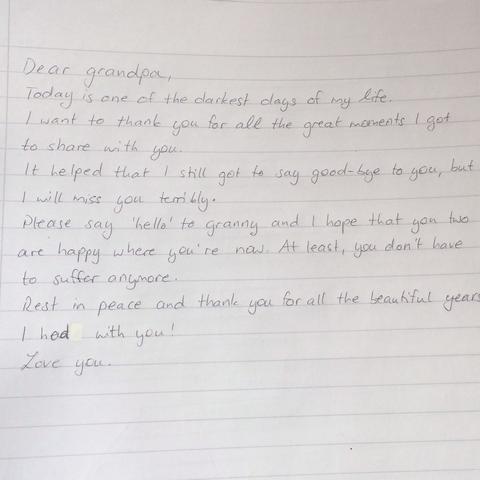 Dear grandpa,
Today is one of the darkest days of my life.
I want to thank you for all the great moments I got
to share with you.
It helped that I still got to say good-bye to you, but
I will miss you terribly.
Please say 'hello' to granny and I hope that you two
are happy where you're now. At least, you don't have
to suffer anymore.
Rest in peace and thank you for all the beautiful years
I had with you!
Love you.